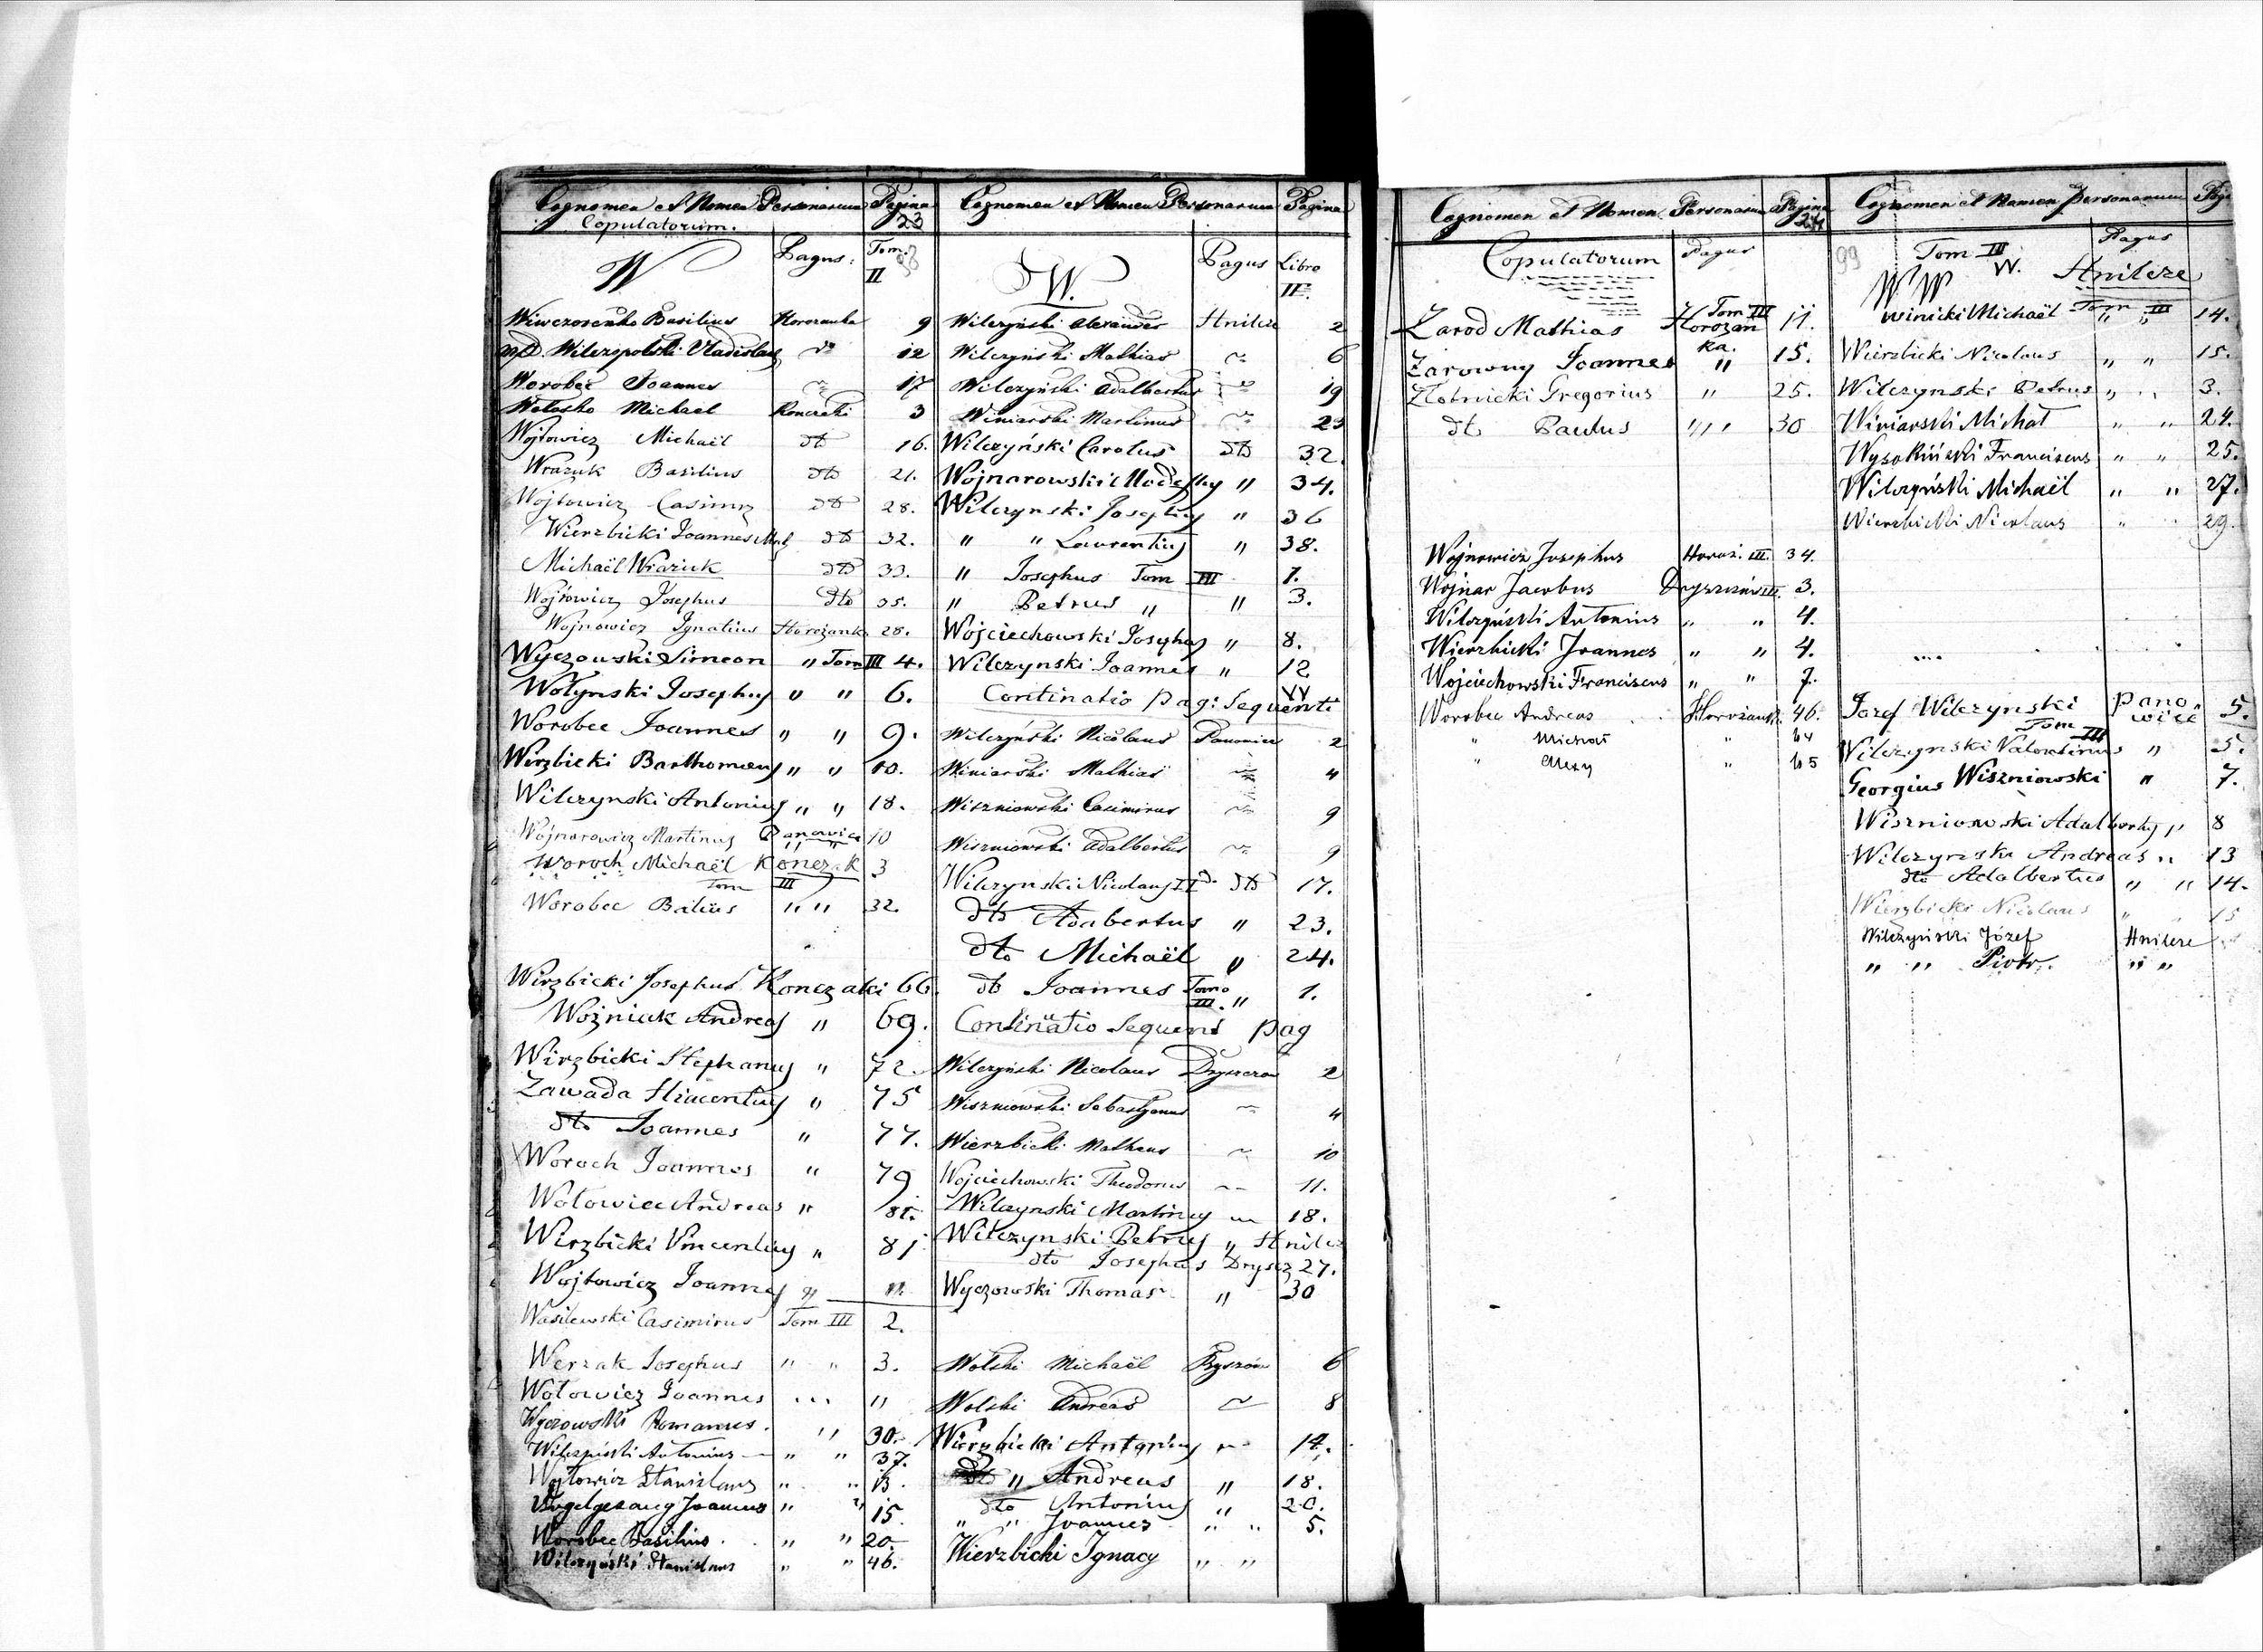 Cognomen et Nomen Personarum Pagina
Copulatorum. 23
W Pagus: Tom. II
Wiwczosenko Basilius Horozanka 9
Wilczopolski Vladislaus dto 12
Worobec Joannes 17
Wołosko Michael Konczaki 3
Wojtowicz Michaël dto 16.
Wrazuk Basilius dto 21.
Wojtowicz Casimir dto 28.
Wierzbicki Joannes dto 32.
Michaël Wrazuk dto 33.
Wojtowicz Josephus dto 35.
Wojnowicz Ignatius Horożanka 28.
Wyczowski Simeon " Tom III 4.
Wołynski Josephus " " 6.
Worobec Joannes " " 9.
Wirzbicki Barthomeus " " 10.
Wilczynski Antonius " " 18.
Wojnarowicz Martinus Panowice 10
Woroch Michaël Konczak 3
Tom III
Worobec Basilius " " 32.
Wirzbicki Josephus Konczaki 66.
Woźniak Andreas " 69.
Wirzbicki Stephanus " 72.
Zawada Hiacentius " 75
dto Joannes " 77.
Woroch Joannes " 79
Wołowiec Andreas "
Wirzbicki Vincentius " 81
Wojtowicz Joannes " "
Wasilewski Casimirus Tom III 2.
Werzak Josephus " " 3.
Wołowicz Joannes " "
Wyczowski Romanus " 30.
Wilczyński Antonius " " 37.
Wojtowicz Stanislaus " "
Vogelgesang Joannes " " 15.
Worobec Basilius " " 20.
Wilczyński Stanislaus " " 46.
Cognomen et Nomen Personarum Pagina
W. Pagus Libro II.
Wilczyński Alexander Hnilcze 2
Wilczyński Mathias 6
Wilczyński Adalbertus 19
Winiarski Martinus 23
Wilczyński Carolus dto 32.
Wojnarowski " 34.
Wilczynski Josephus " 36
" " Laurentius " 38.
" Josephus Tom III 1.
" Petrus " " 3.
Wojciechowski Josephus " 8.
Wilczynski Joannes " 12
Continatio pag: Sequenti
Wilczyński Nicolaus Panowice 2
Winiarski Mathias 4
Wiszniowski Casimirus 9
Wiszniowski Adalbertus 9
Wilczynski Nicolaus dto 17.
dto Adabertus " 23.
dto Michaël " 24.
dto Joannes Tomo III. " 1.
Continuatio Sequens pag
Wilczyński Nicolaus Dryszczow 2
Wiszniowski Sebastyanus 4
Wierzbicki Matheus 10
Wojciechowski Theodorus 11.
Wilczynski Martinus 18.
Wilczynski Petrus " Hnilcze
dto Josephus Drysz 27.
Wyczowski Thomas " 30
Wolski Michaël Ryszów 6
Wolski Andreas 8
Wierzbicki Antonius 14.
" Andreas " 18.
dto Antonius " 20.
" " Joannes " " 5.
Wierzbicki Ignacy " "
Cognomen et Nomen Personarum Pagina
24
Copulatorum Pagus
Zarod Mathias Tom III Horozanka. 11.
Zarowny Joannes " 15.
Złotnicki Gregorius " 25.
dto Paulus " " 30
Wojnowicz Josephus Horoż. III. 34.
Wojnar Jacobus Dryszczów III. 3.
Wilczyński Antonius " " 4.
Wierzbicki Joannes " " 4.
Wojciechowski Franciscus " " 7.
Worobec Andreas Horożank. 46.
" Michał " 64
" " 65
Cognomen et Nomen Personarum Pag
99 Tom III W. Pagus
W W Hnilcze
Winicki Michaël Tom III 14.
Wierzbicki Nicolaus " " 15.
Wilczynski Petrus " " 3.
Winiarski Michał " " 24.
Wysokiński Franciscus " " 25.
Wilczyński Michaël " " 27.
Wierzbicki Nicolaus " " 29.
Jozef Wilczynski Panowice 5.
Tom III
Wilczynski Valentinus " 5.
Georgius Wiszniowski " 7.
Wiszniowski Adalbertus " 8
Wilczynski Andreas " 13
dto Adalbertus " " 14.
Wierzbicki Nicolaus " " 15
Wilczyński Józef Hnilcze
" " Piotr. " "